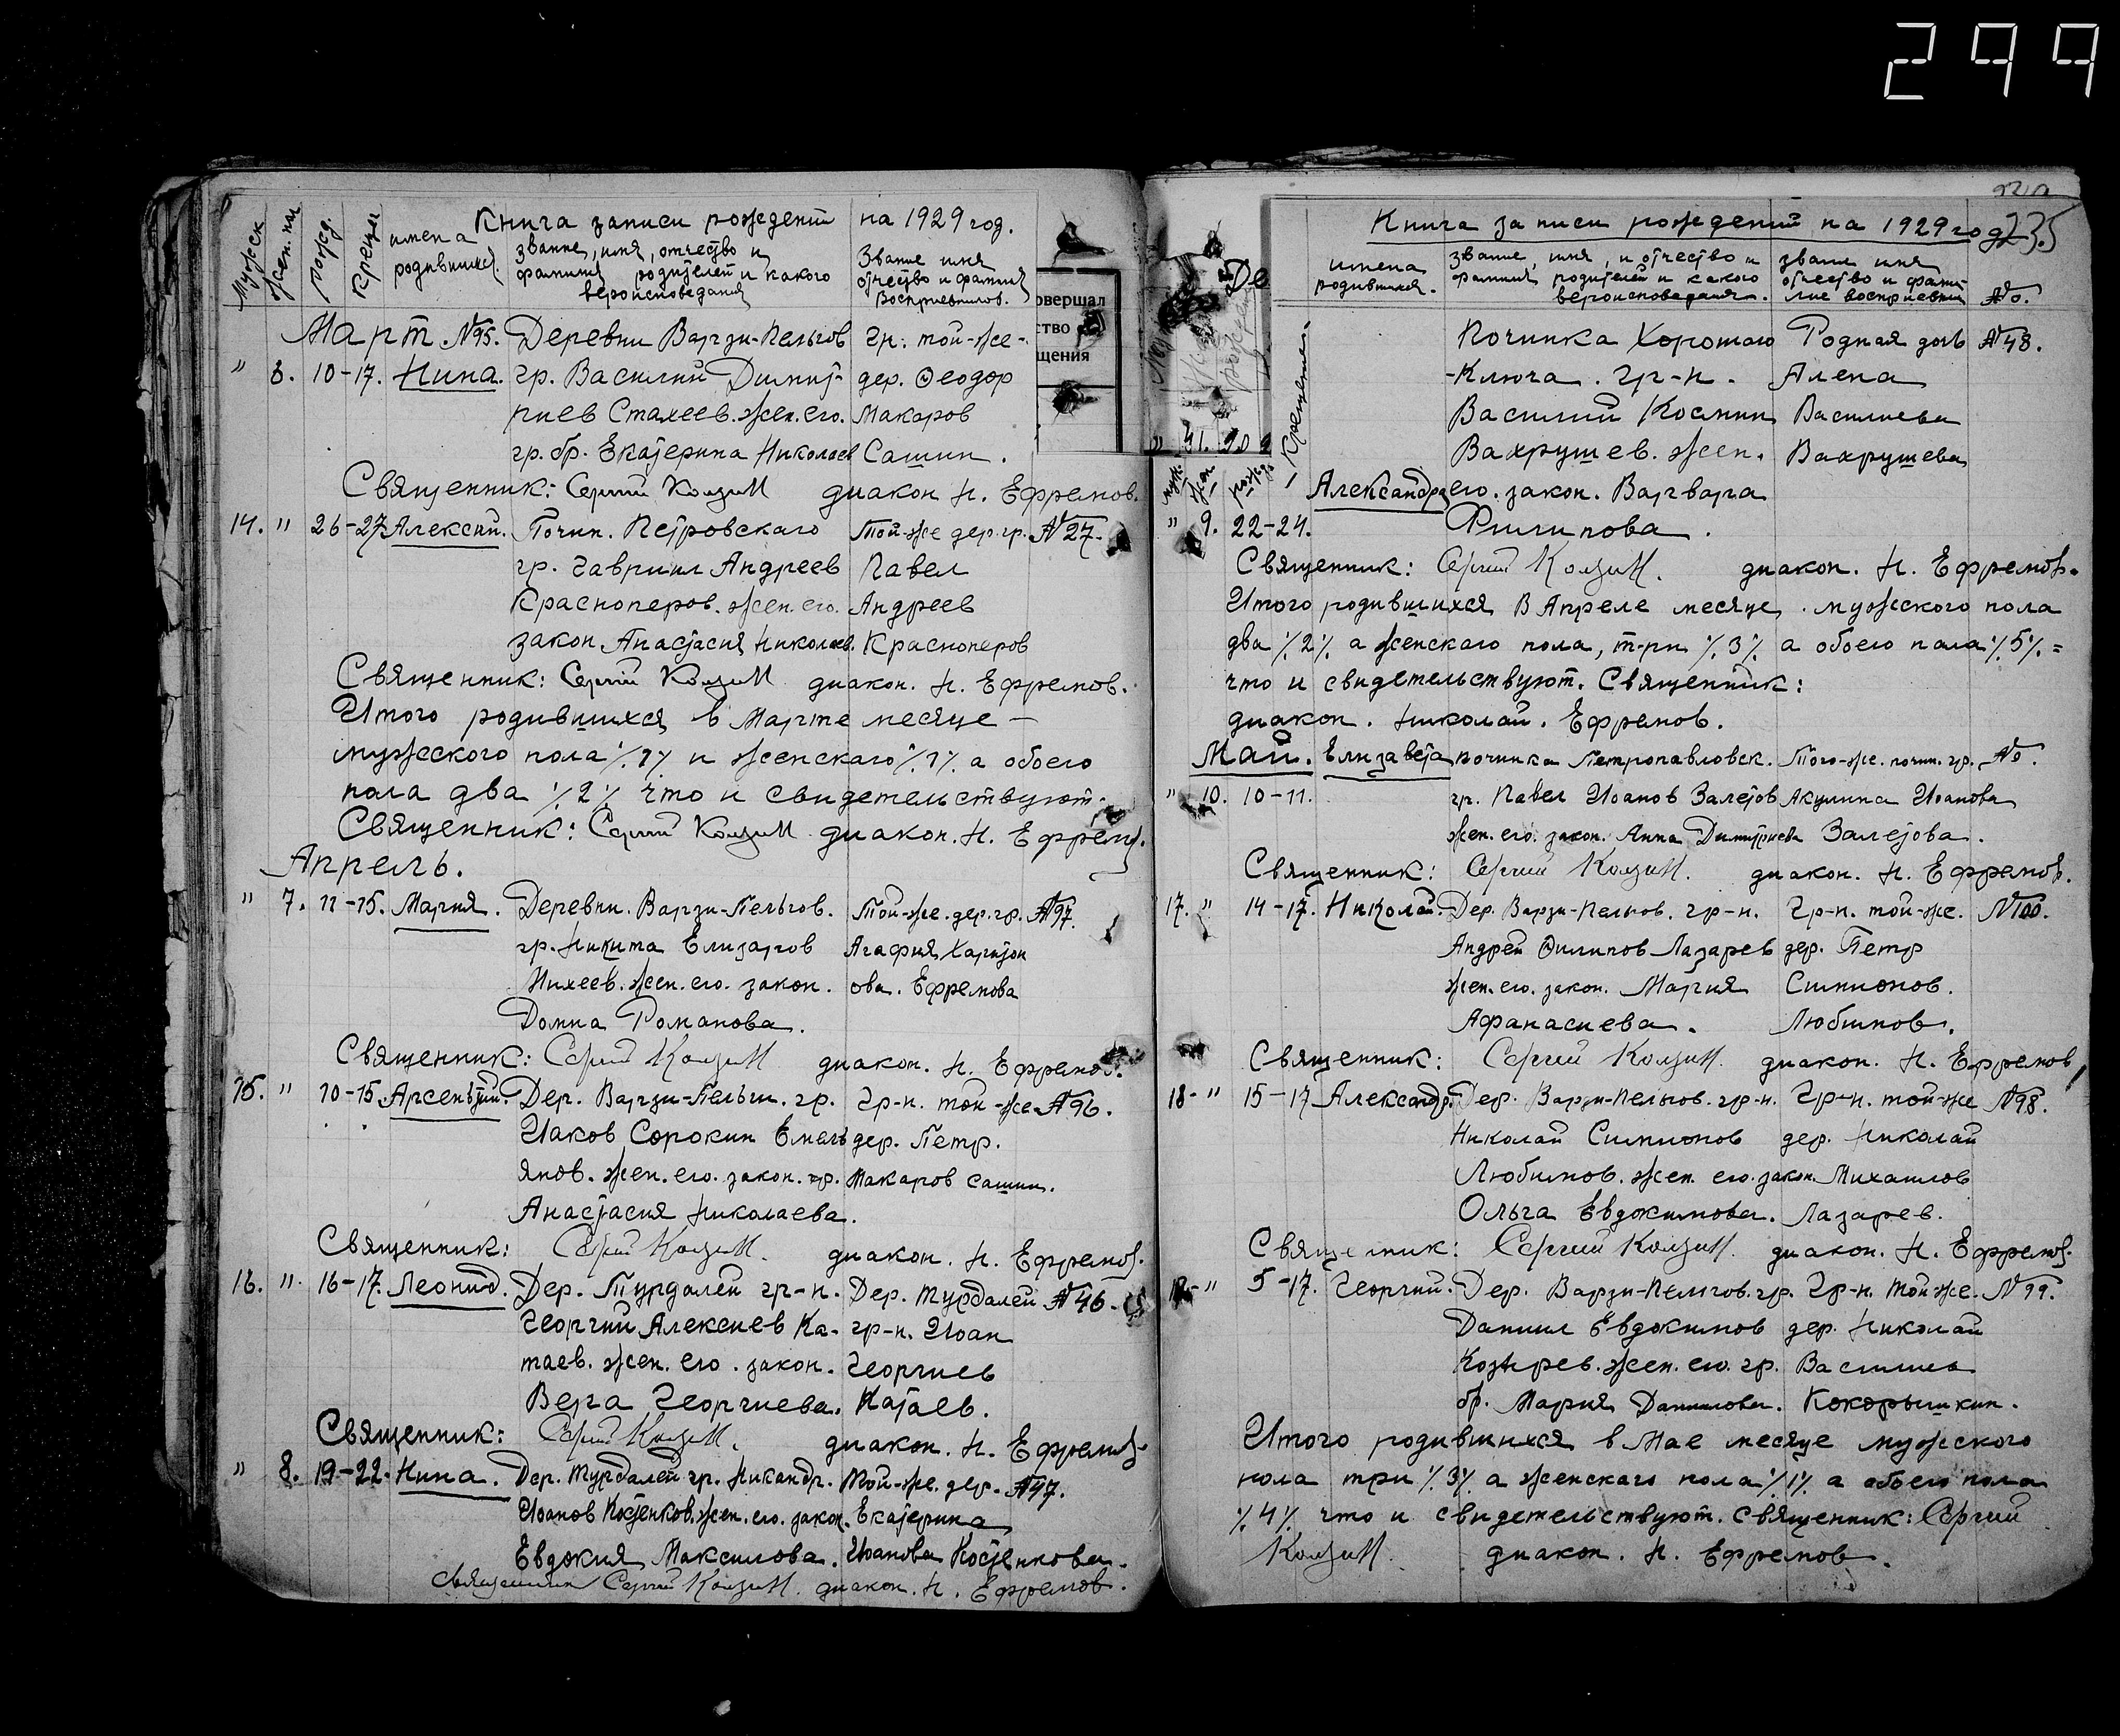 299
Мужск
Жен. пл
рожд.
Крещен
имена
родившихс.
Книга записи рождений на 1929 год.
звание, имя, отчество и
фамилия родителей и какого
вероисповедания
Звание имя
отчество и фамил
восприемников.
Март. №95. Деревни Варзи-Пельгов гр. той-же-
" 6. 10-17. Нина. гр. Василий Димит- дер. Ѳеодор
риев Стахеев. жен. его. Макаров
гр. бр. Екатерина Николаев Сашин.
Священник: Сергий диакон Н. Ефремов.
14. " 26-27 Алексий. Почин. Петровскаго Той-же дер. гр. №27.
гр. Гавриил Андреев Павел
Красноперов. жен. его. Андреев
закон. Анастасия Николаев. Красноперов
Священник: Сергий диакон. Н. Ефремов.
Итого родившихся в Марте месяце —
мужского пола ٪1٪ и женскаго ٪1٪ а обоего
пола два ٪2٪ что и свидетельствуют.
Священник: Сергий диакон. Н. Ефремов.
Апрель.
" 7. 11-15. Мария. Деревни. Варзи-Пельгов. Той-же. дер. гр. №97.
гр. Никита Елизаров Агафия Харитон
Михеев. жен. его. закон. ова. Ефремова
Домна Романова.
Священник: Сергий диакон. Н. Ефремов.
15. " 10-15. Арсентий. Дер. Варзи-Пельги. гр. гр-н. той-же №96.
Иаков Сорокин Емель дер. Петр.
янов. жен. его. закон. гр. Макаров Сашин.
Анастасия Николаева.
Священник: Сергий диакон. Н. Ефремов.
16. " 16-17. Леонид. Дер. Турдалей гр-н. Дер. Турдалей №46.
Георгий Алексиев Ка- гр-н. Иоан
таев. жен. его. закон. Георгиев
Вера Георгиева. Катаев.
Священник: Сергий диакон. Н. Ефремов.
" 8. 19-22. Нина. Дер. Турдалей гр. Никандр. Той-же. дер. №47.
Иванов Костенков. жен. его. закон. Екатерина
Евдокия Максимова. Иванова Костенкова.
священник Сергий диакон. Н. Ефремов.
овершал
ство
щения
Де
235
Книга записи рождений на 1929 год
имена
родившихся.
звание, имя, и отчество и
фамилия родителей и какого
вероисповедания.
звание имя
отчество и фами-
лие восприемни
№.
Крещения.
Починка Хорошаго Родная дочь №48.
Ключа. гр-н. Алена
Василий Косьмин Василиева
Вахрушев. жен. Вахрушева
Александра его. закон. Варвара
" 9. 22-24. Филипова.
Священник: Сергий диакон. Н. Ефремов.
Итого родившихся в Апреле месяце. мужского пола
два ٪2٪ а женскаго пола, три ٪3٪ а обоего пола ٪5٪=
что и свидетельствуют. Священник:
диакон. Николай. Ефремов.
Май. Елизавета починка Петропавловск. Того-же. почин. гр. №.
" 10. 10-11. гр. Павел Иванов Залетов Акулина Иванова
жен. его. закон. Анна Димитриева Залетова.
Священник: Сергий диакон. Н. Ефремов.
17. " 14-17. Николай. Дер. Варзи-Пельгов. гр-н. Гр-н. той-же. №100.
Андрей Ѳилипов Лазарев дер. Петр
жен. его. закон. Мария Симионов.
Афанасиева. Любимов.
Священник: Сергий диакон. Н. Ефремов
18- " 15-17 Александр. Дер. Варзи-Пельгов. гр-н. Гр-н. той-же №98.
Николай Симионов дер. Николай
Любимов. жен. его. закон. Михаилов
Ольга Евдокимова. Лазарев.
Священник: Сергий диакон. Н. Ефремов.
" 5-17. Георгий. Дер. Варзи-Пельгов. гр. Гр-н. той-же. №99.
Даниил Евдокимов дер. Николай
Козырев. жен. его. гр. Василиев
бр. Мария Данилова. Кокорышкин.
Итого родившихся в Мае месяце мужского
пола три ٪3٪ а женскаго пола ٪1٪ а обоего пола
٪4٪ что и свидетельствуют. Священник: Сергий
диакон. Н. Ефремов.